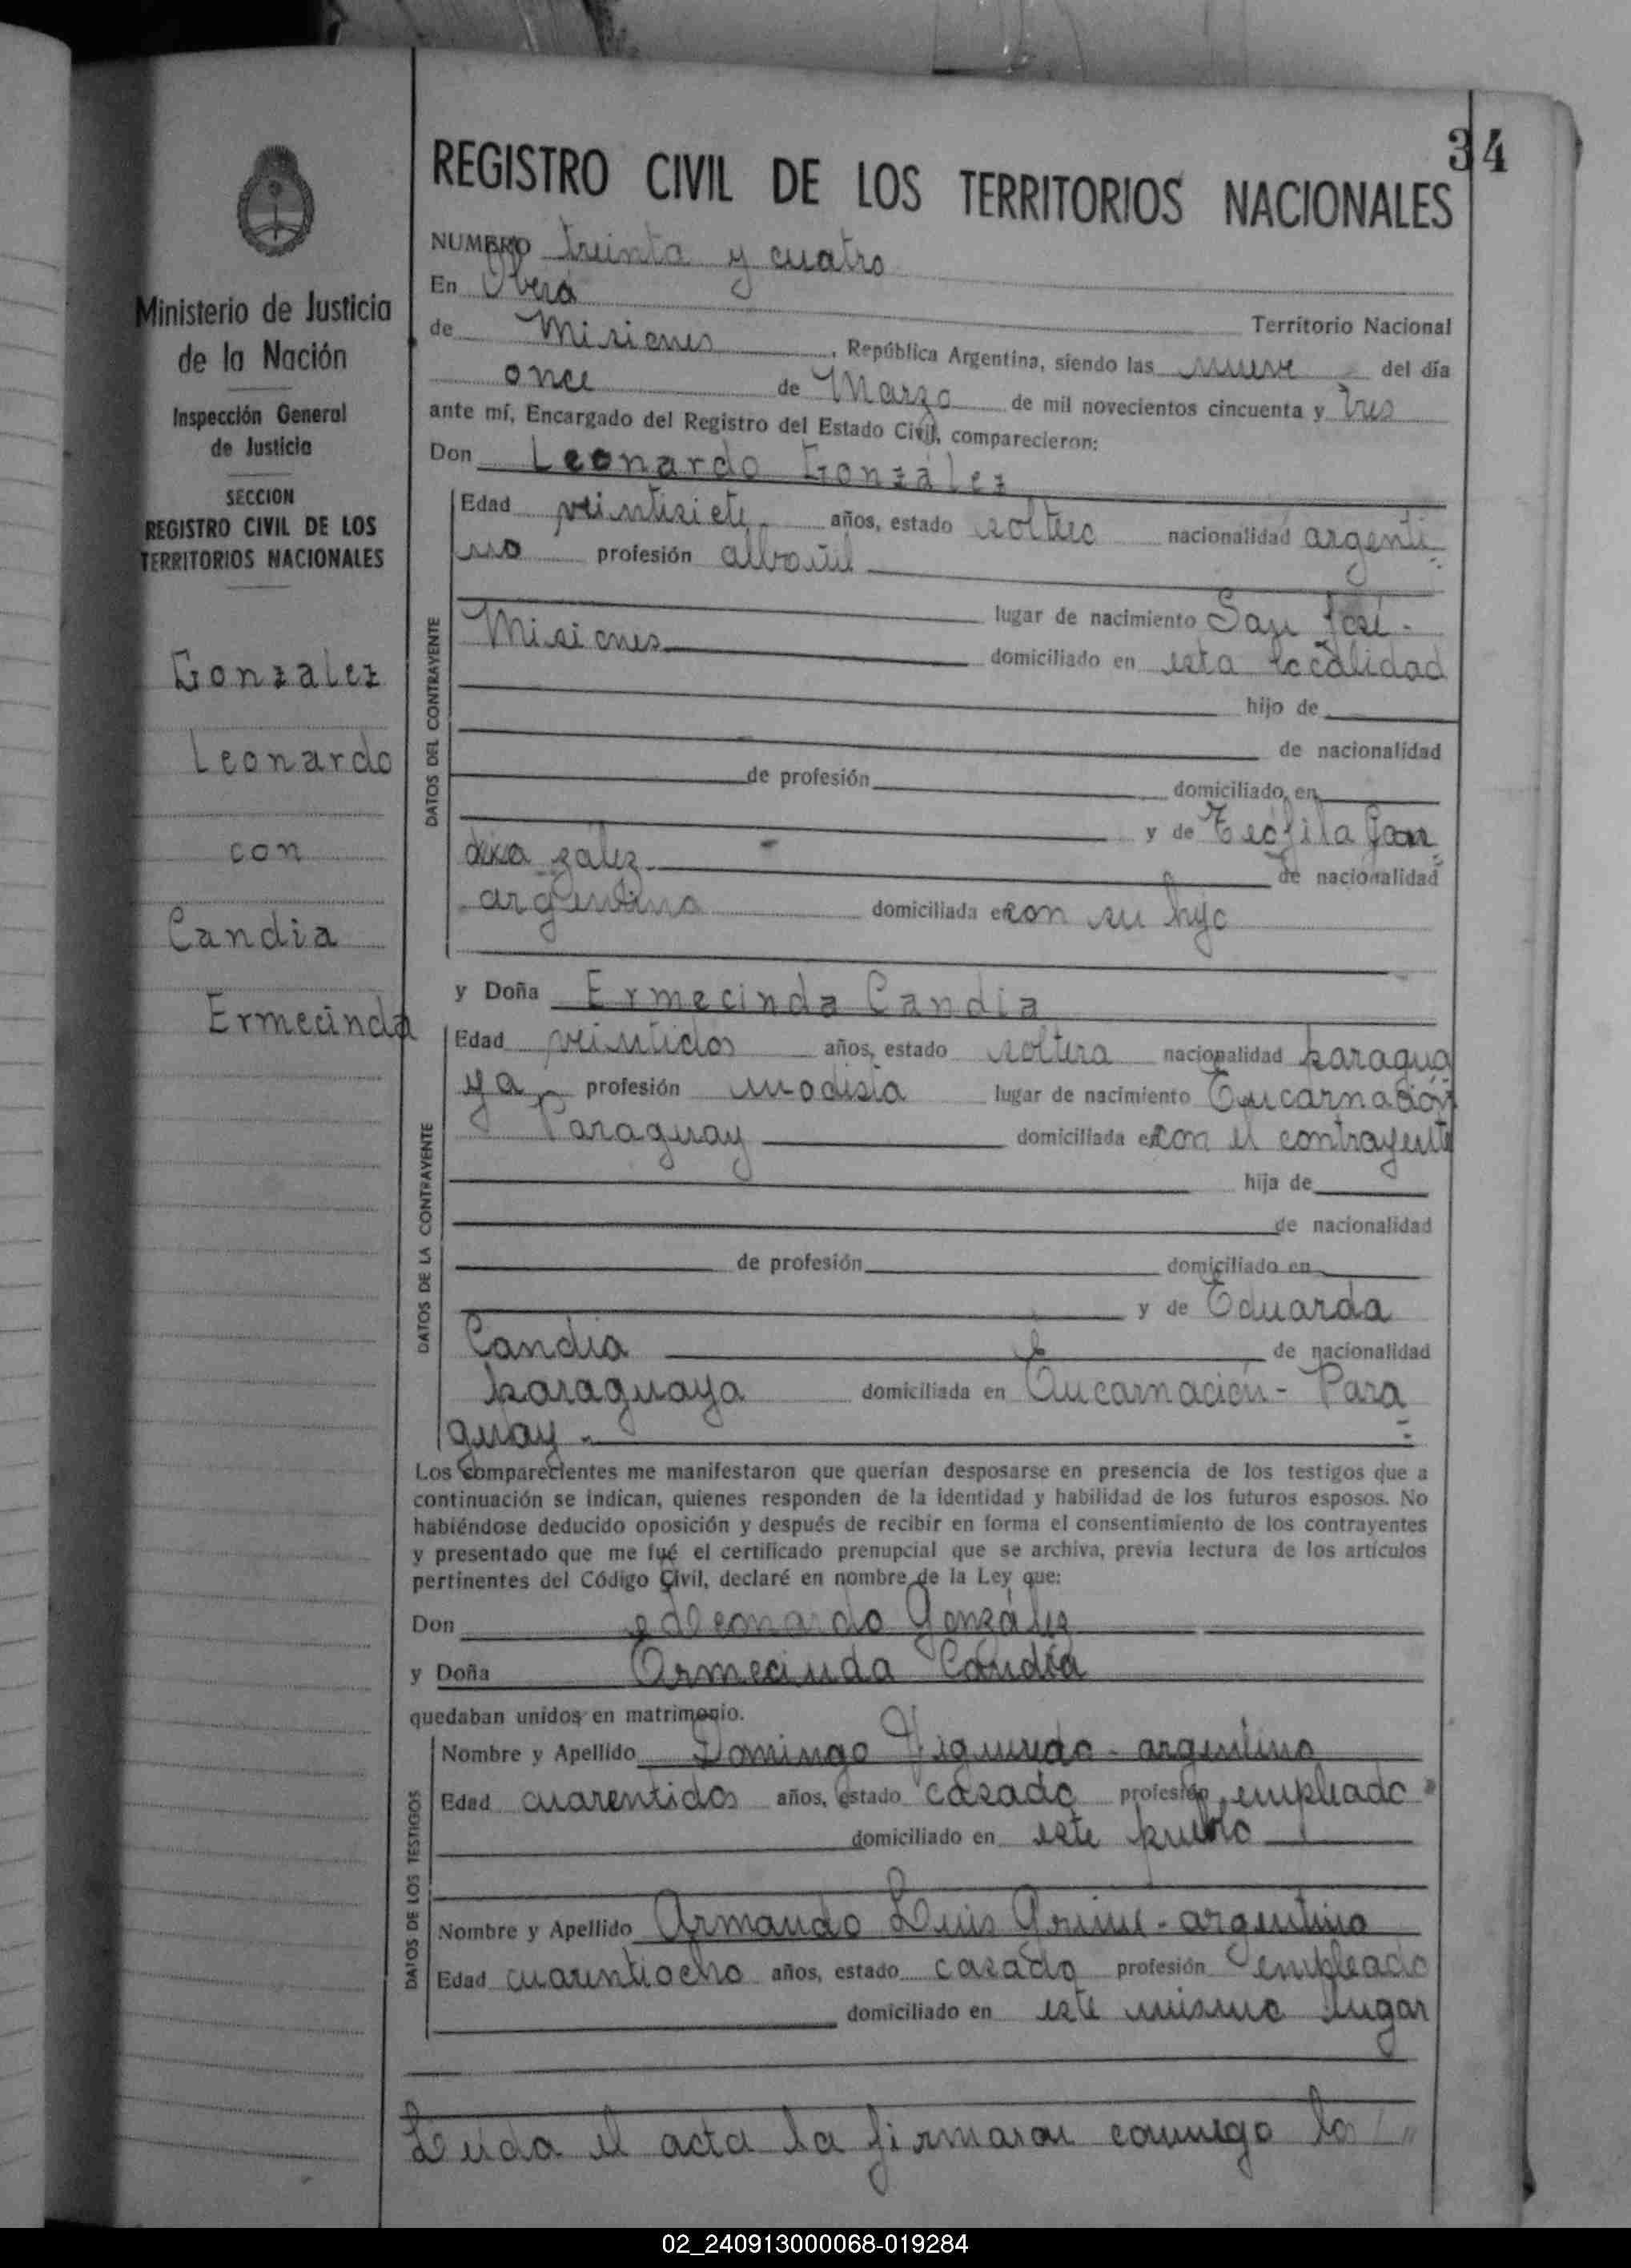 34
REGISTRO CIVIL DE LOS TERRITORIOS NACIONALES
Ministerio de Justicia
de la Nación
Inspección General
de Justicia
SECCION
REGISTRO CIVIL DE LOS
TERRITORIOS NACIONALES
Gonzalez
Leonardo
con
Candia
Ermecinda
NUMERO treinta y cuatro
En Oberá
Territorio Nacional
de Misiones, República Argentina, siendo las nueve del día
once de Marzo de mil novecientos cincuenta y tres
ante mí, Encargado del Registro del Estado Civil, comparecieron:
Don Leonardo González
DATOS DEL CONTRAYENTE
Edad veintisiete años, estado soltero nacionalidad argenti-
no profesión albañil
lugar de nacimiento San José-
Misiones domiciliado en esta localidad
hijo de
de nacionalidad
de profesión domiciliado en
y de Teófila Gon
zález de nacionalidad
argentina domiciliada en con su hijo
y Doña Ermecinda Candia
DATOS DE LA CONTRAYENTE
Edad veintidos años, estado soltera nacionalidad paragua
ya profesión modista lugar de nacimiento Encarnación
Paraguay domiciliada en con el contrayente
hija de
de nacionalidad
de profesión domiciliado en
y de Eduarda
Candia de nacionalidad
paraguaya domiciliada en Encarnación- Para
guay-
Los comparecientes me manifestaron que querían desposarse en presencia de los testigos que a
continuación se indican, quienes responden de la identidad y habilidad de los futuros esposos. No
habiéndose deducido oposición y después de recibir en forma el consentimiento de los contrayentes
y presentado que me fué el certificado prenupcial que se archiva, previa lectura de los artículos
pertinentes del Código Civil, declaré en nombre de la Ley que:
Don Leonardo González
y Doña Ermecinda Candia
quedaban unidos en matrimonio.
DATOS DE LOS TESTIGOS
Nombre y Apellido Domingo Figueredo - argentino
Edad cuarentidos años, estado casado profesión empleado
domiciliado en este pueblo
Nombre y Apellido Armando Luis - argentino
Edad cuarentiocho años, estado casado profesión empleado
domiciliado en este mismo lugar
Leida el acta la firmaron conmigo lo
02_240913000068-019284